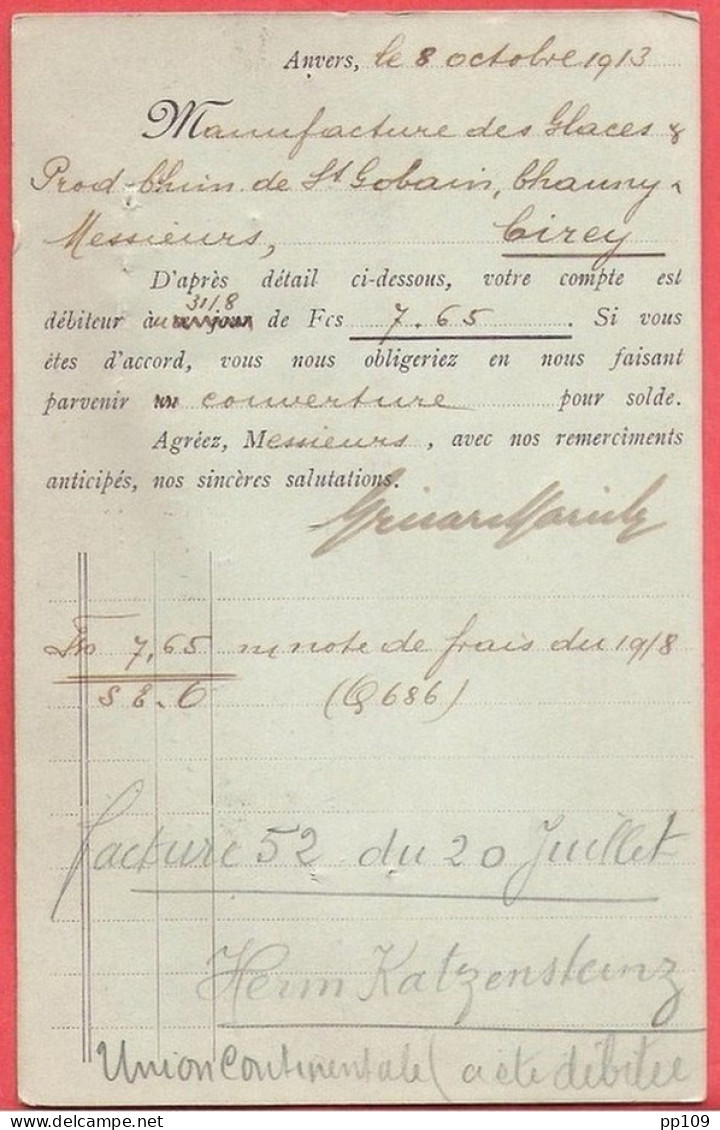 Anvers, le 8 octobre 1913
Manufacture des Glaces &
Prod. Chim de St Gobain, Chauny &
Messieurs, Cirey
D'après détail ci-dessous, votre compte est
débiteur au 31/8 de Fcs 7.65. Si vous
êtes d'accord, vous nous obligeriez en nous faisant
parvenir couverture pour solde.
Agréez, Messieurs, avec nos remerciments
anticipés, nos sincères salutations.
7,65 n/ note de frais du 19/8
S E. O (Q 686)
facture 52 du 20 Juillet
Herm Katzensteinz
Union Continentale (a été débitée
pp109